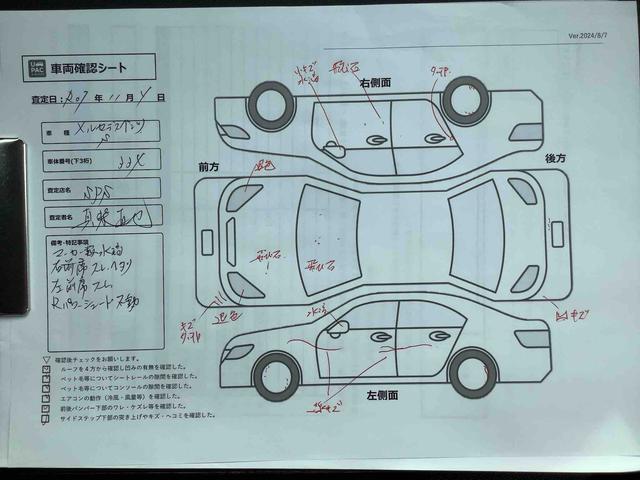 Ver.2024/8/7
U PAC 車両確認シート
査定日：R07年 11月 4日
車種 メルセデスベンツ S
車体番号(下3桁)
査定店名
査定者名
備考・特記事項
右前席 スレ、ヘタリ
左前席 スレ
Rパワーシェード不動
▽ 確認後チェックをお願いします。
ルーフを４方から確認し凹みの有無を確認した。
ペット毛等についてシートレールの隙間を確認した。
ペット毛等についてコンソールの隙間を確認した。
エアコンの動作（冷風・風量等）を確認した。
前後バンパー下部のワレ・ケズレ等を確認した。
サイドステップ下部の突き上げやキズ・ヘコミを確認した。
右側面
飛び石
前方
後方
退色
飛び石
!
飛び石
退色
キズ
キズ
左側面